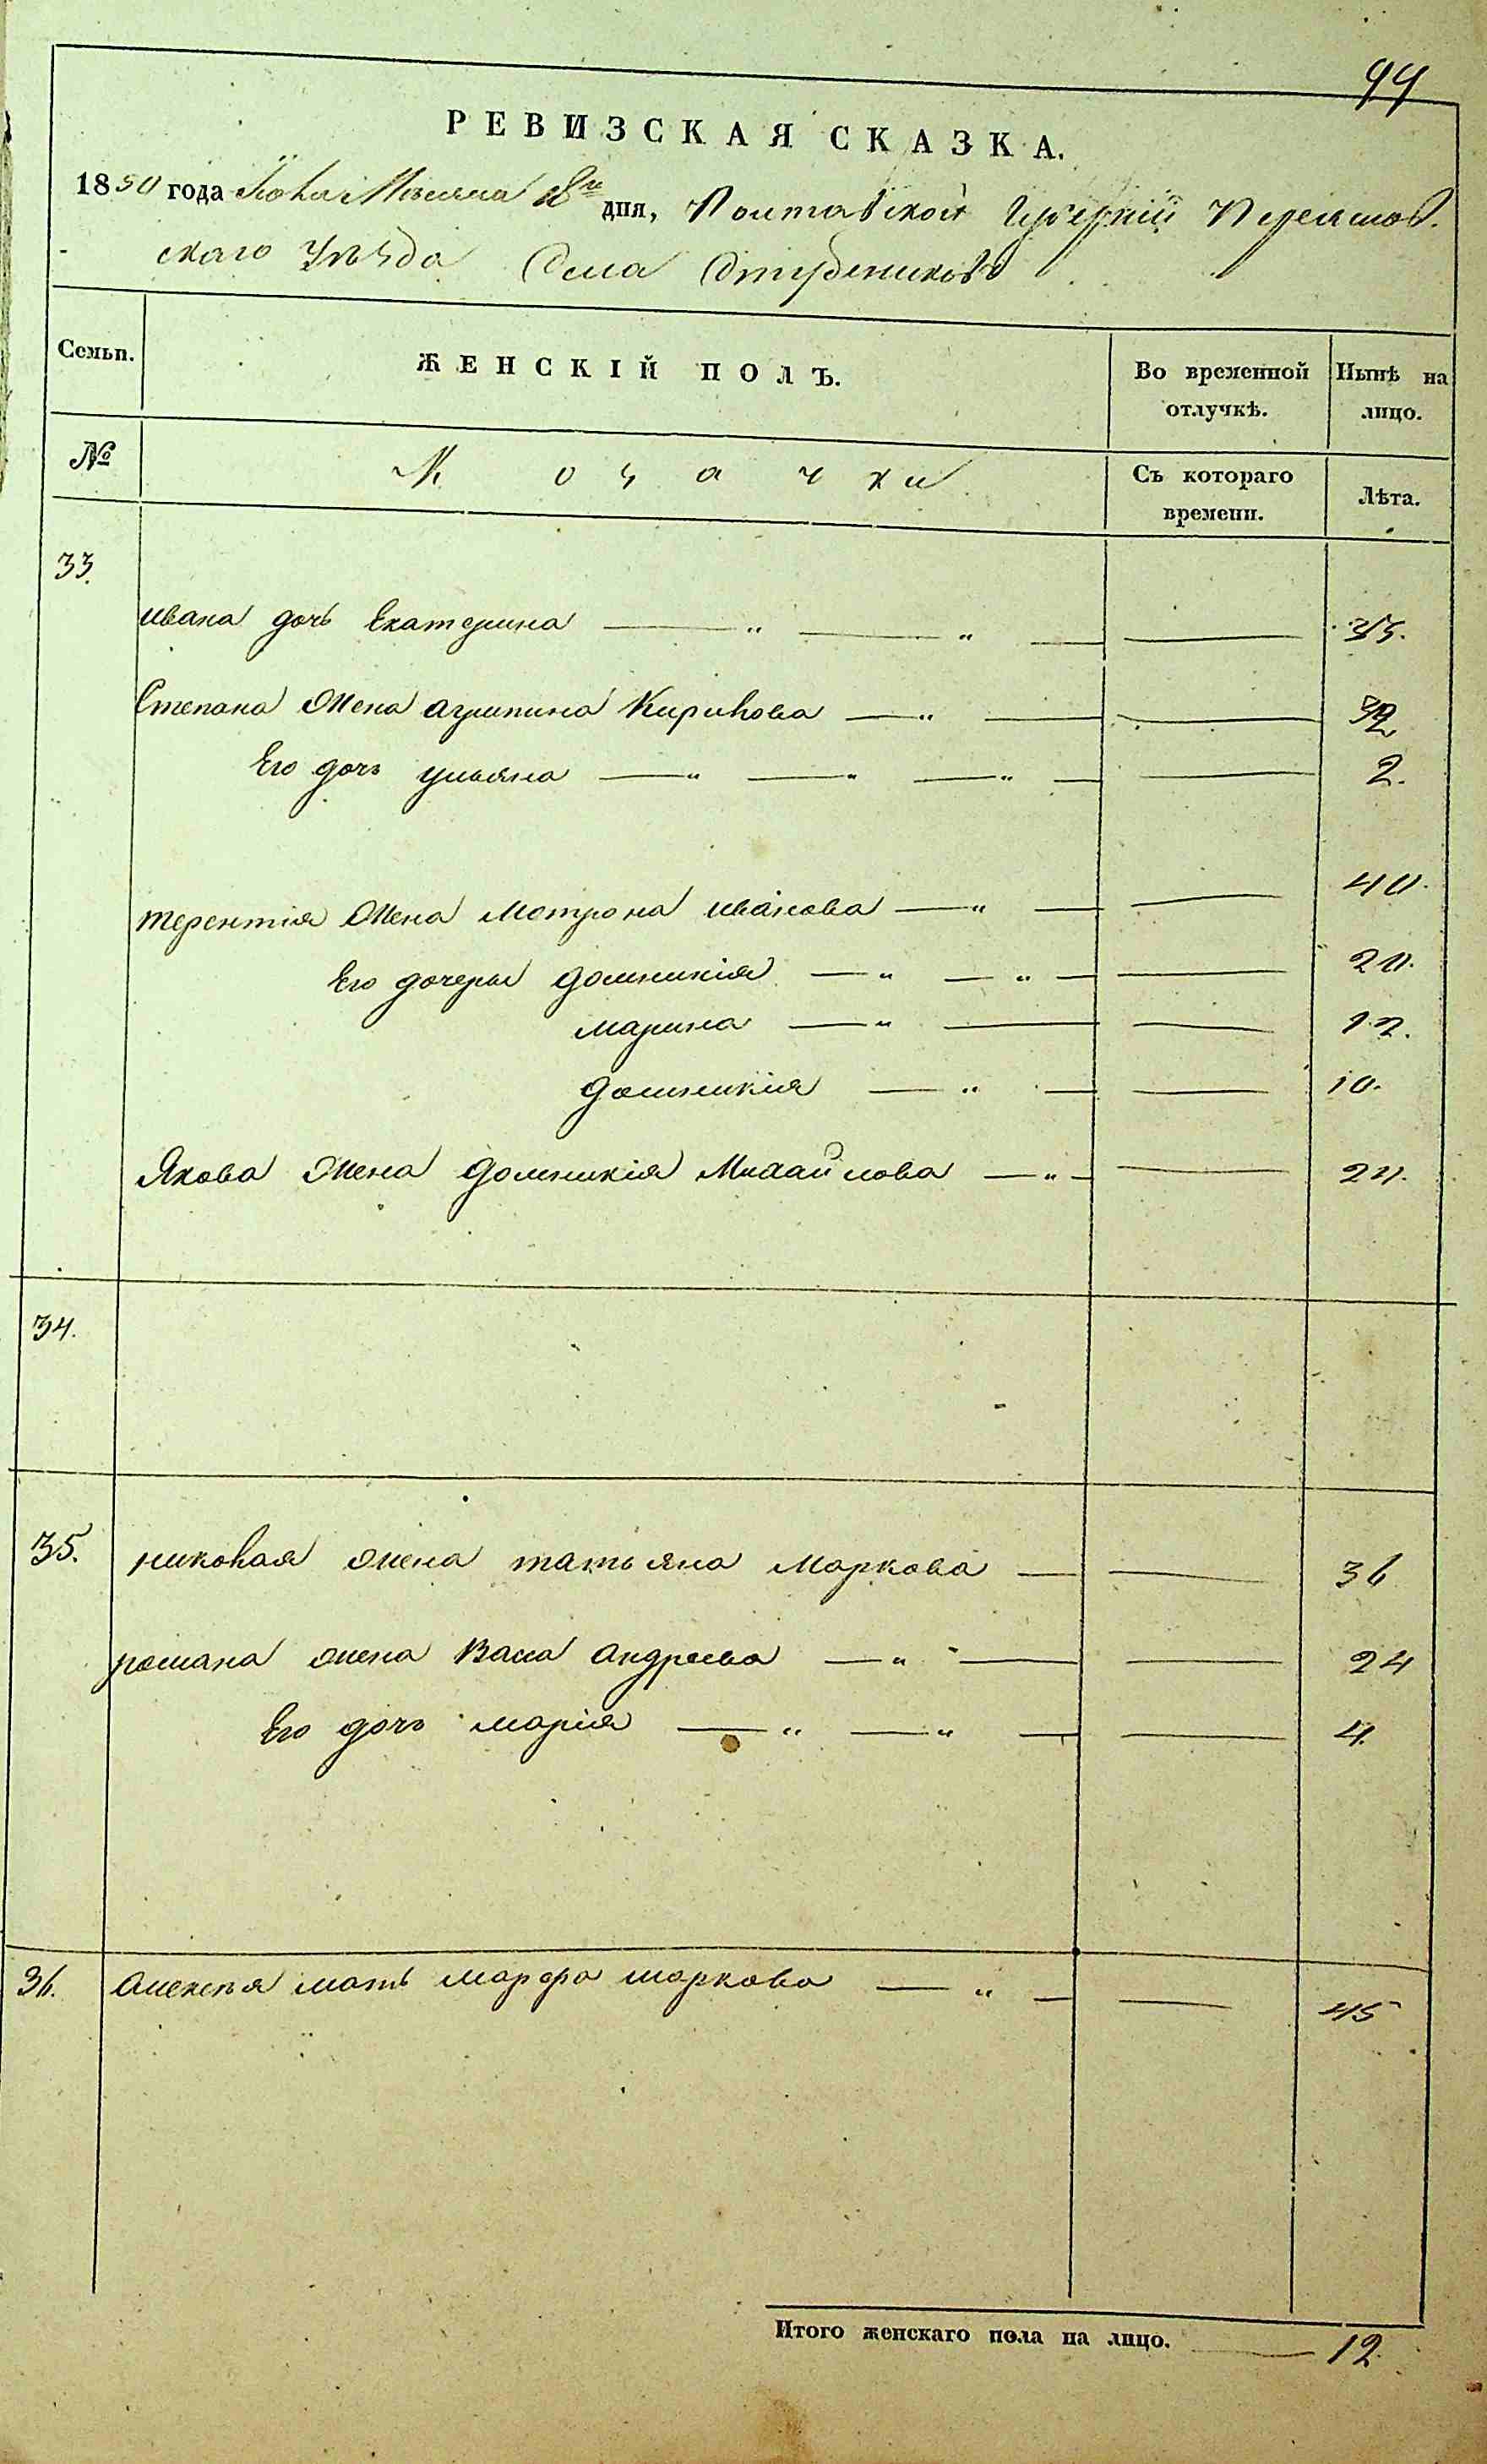 99
РЕВИЗСКАЯ СКАЗКА.
1850 года Июля Месяца дня, Полтавской Губернии Переяслов-
скаго Уезда Села Студениковъ
Семьи.
ЖЕНСКІЙ ПОЛЪ.
Во временной отлучкѣ.
Нынѣ на лицо.
№
Козачки
Съ котораго времени.
Лѣта.
33.
ивана дочь Екатерина — " — " — —
Степана жена агрипина Кирилова — " — —
Его дочь ульяна — " — " — " — — 2.
терентія жена мотрона иванова — " — — 40.
Его дочеры домникія — " — " — — 20.
марина — " — — 12.
домникія — " — — 10.
Якова жена домникія Михайлова — " — — 20.
34.
35. николая жена татьяна Маркова — — 36
романа жена Васа андреева — " — — 24
Его дочь марія — " — " — — 4.
36. алексея мать марфа маркова — " — — 45
Итого женскаго пола на лицо. — 12.